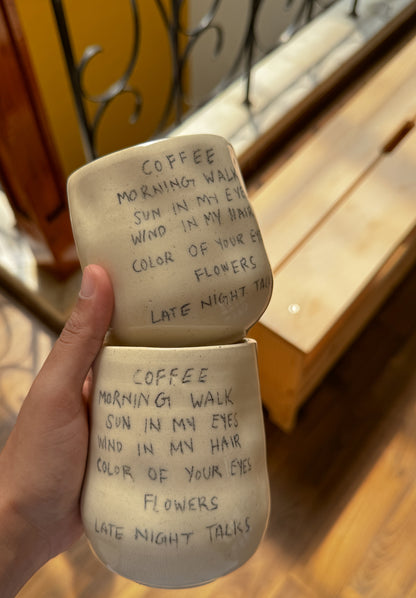 COFFEE
MORNING WALK
SUN IN MY EYE
WIND IN MY HAIR
COLOR OF YOUR EY
FLOWERS
LATE NIGHT TAL
COFFEE
MORNING WALK
SUN IN MY EYES
WIND IN MY HAIR
COLOR OF YOUR EYES
FLOWERS
LATE NIGHT TALKS